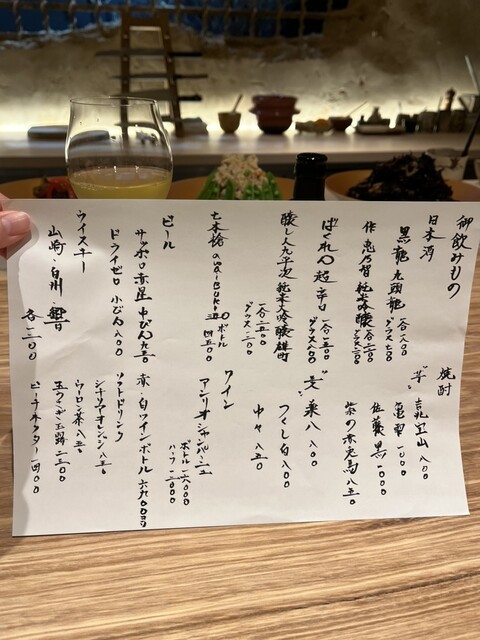 御飲みもの
日本酒
黒龍 九頭龍 一合一八〇〇
グラス七〇〇
作 恵乃智 純米吟醸 一合二〇〇〇
ばくれん 超辛口 一合一五〇〇
醸し人九平次 純米大吟醸 雄町
一合二五〇〇
グラス一二〇〇
七本槍 awaibuki
ボトル
四五〇〇
ビール
サッポロ赤星 中びん 九五〇
ドライゼロ 小びん 八〇〇
ウイスキー
山崎・白州・響
各一三〇〇
焼酎
芋
吉兆宝山 八〇〇
佐藤 黒 一〇〇〇
紫の赤兎馬 八五〇
麦
兼八 一〇〇〇
つくし 白 八〇〇
中々 八五〇
ワイン
アンリオ シャンパーニュ
ボトル 一六〇〇〇
赤・白ワインボトル 六九〇〇ヨリ
ソフトドリンク
ウーロン茶 八五〇
玉うさぎ玉露 二三〇〇
ピーチネクター 一四〇〇